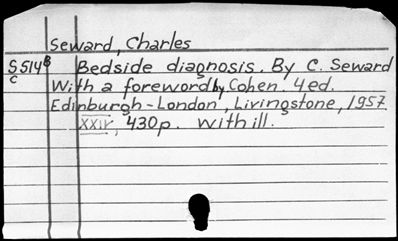 Seward, Charles
S514B Bedside diagnosis. By C. Seward
C With a foreword by Cohen. 4ed.
Edinburgh-London, Livingstone, 1957.
XXIV, 430p. With ill.